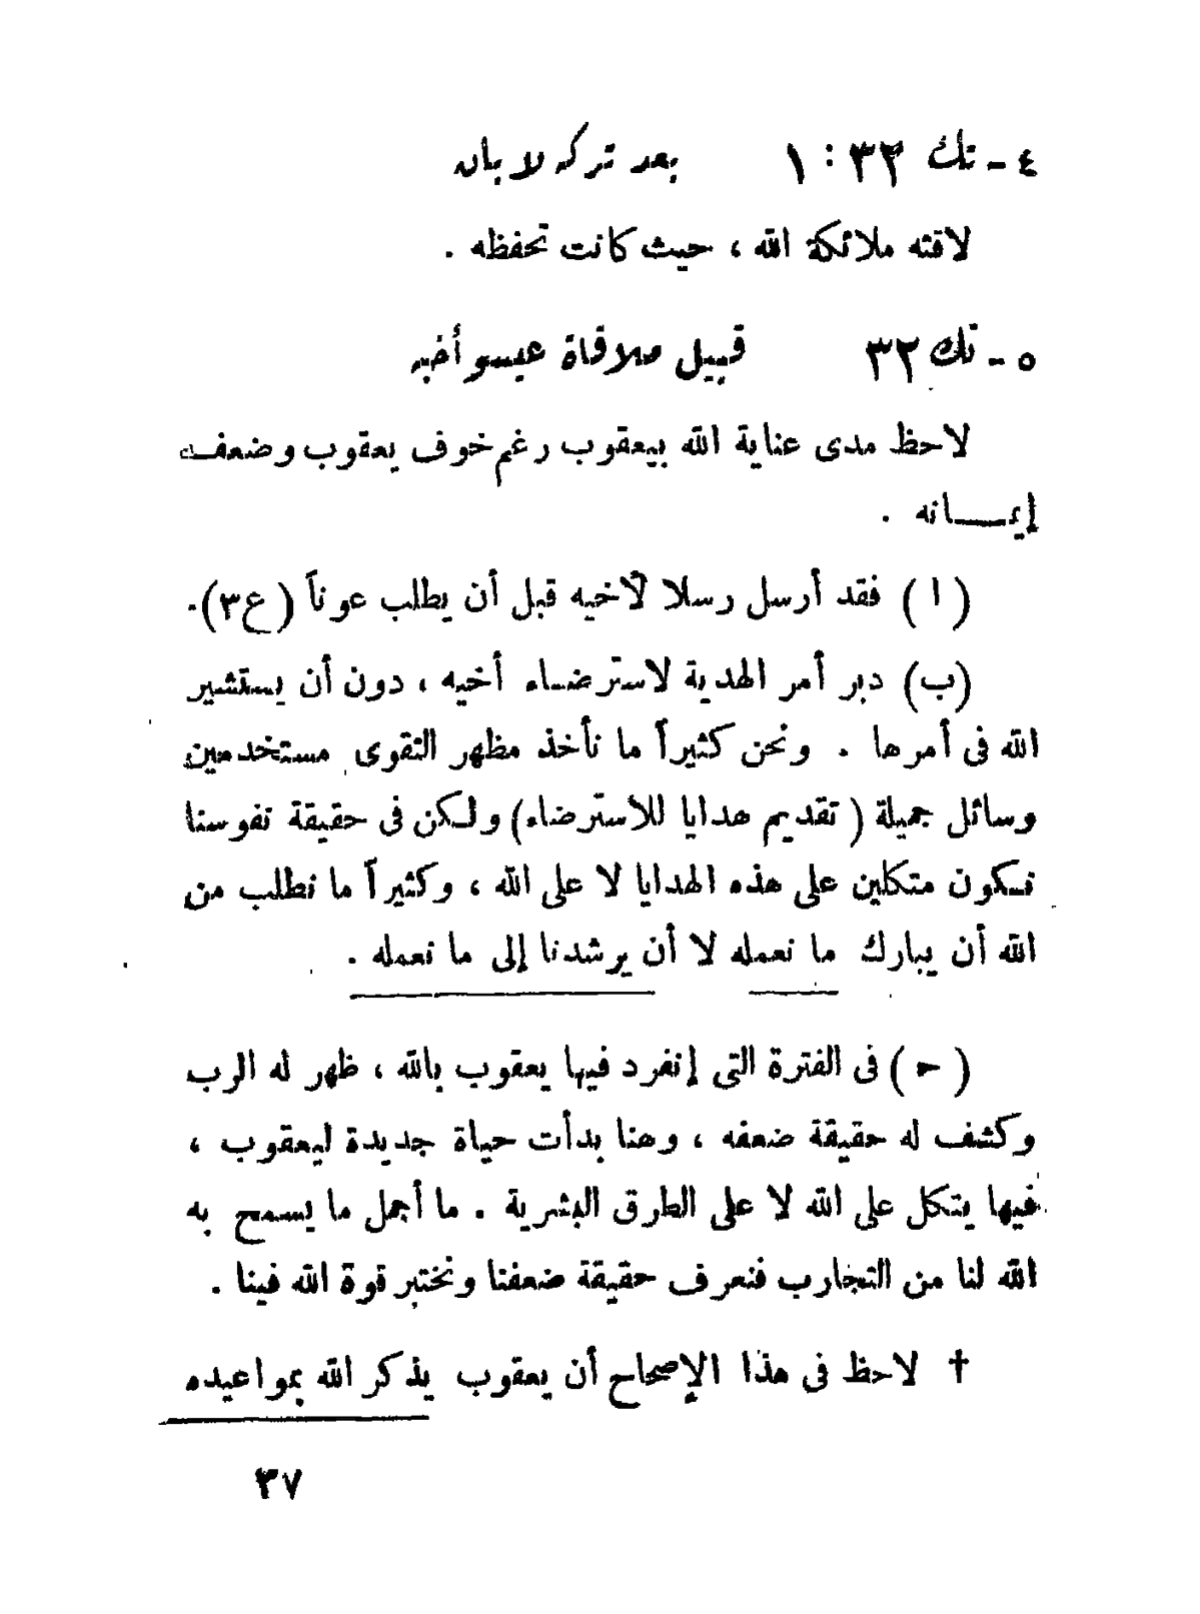 ٤ - تك ٣٢ : ١ بعد تركه لابان
لاقته ملائكة الله ، حيث كانت تحفظه .
٥ - تك ٣٢ قبيل ملاقاة عيسو أخيه
لاحظ مدى عناية الله بيعقوب رغم خوف يعقوب وضعف
إيمـــانه .
( ا ) فقد أرسل رسلا لأخيه قبل أن يطلب عوناً ( ع٣ ).
(ب) دبر أمر الهدية لاسترضاء أخيه ، دون أن يستشير
الله فى أمرها . ونحن كثيراً ما نأخذ مظهر التقوى مستخدمين
وسائل جميلة ( تقديم هدايا للاسترضاء) ولكن فى حقيقة نفوسنا
نكون متكلين على هذه الهدايا لا على الله ، وكثيراً ما نطلب من
الله أن يبارك ما نعمله لا أن يرشدنا إلى ما نعمله .
( ح ) فى الفترة التى إنفرد فيها يعقوب بالله ، ظهر له الرب
وكشف له حقيقة ضعفه ، وهنا بدأت حياة جديدة ليعقوب ،
فيها يتكل على الله لا على الطرق البشرية . ما أجمل ما يسمح به
الله لنا من التجارب فنعرف حقيقة ضعفنا ونختبر قوة الله فينا .
† لاحظ فى هذا الإصحاح أن يعقوب يذكر الله بمواعيده
٣٧